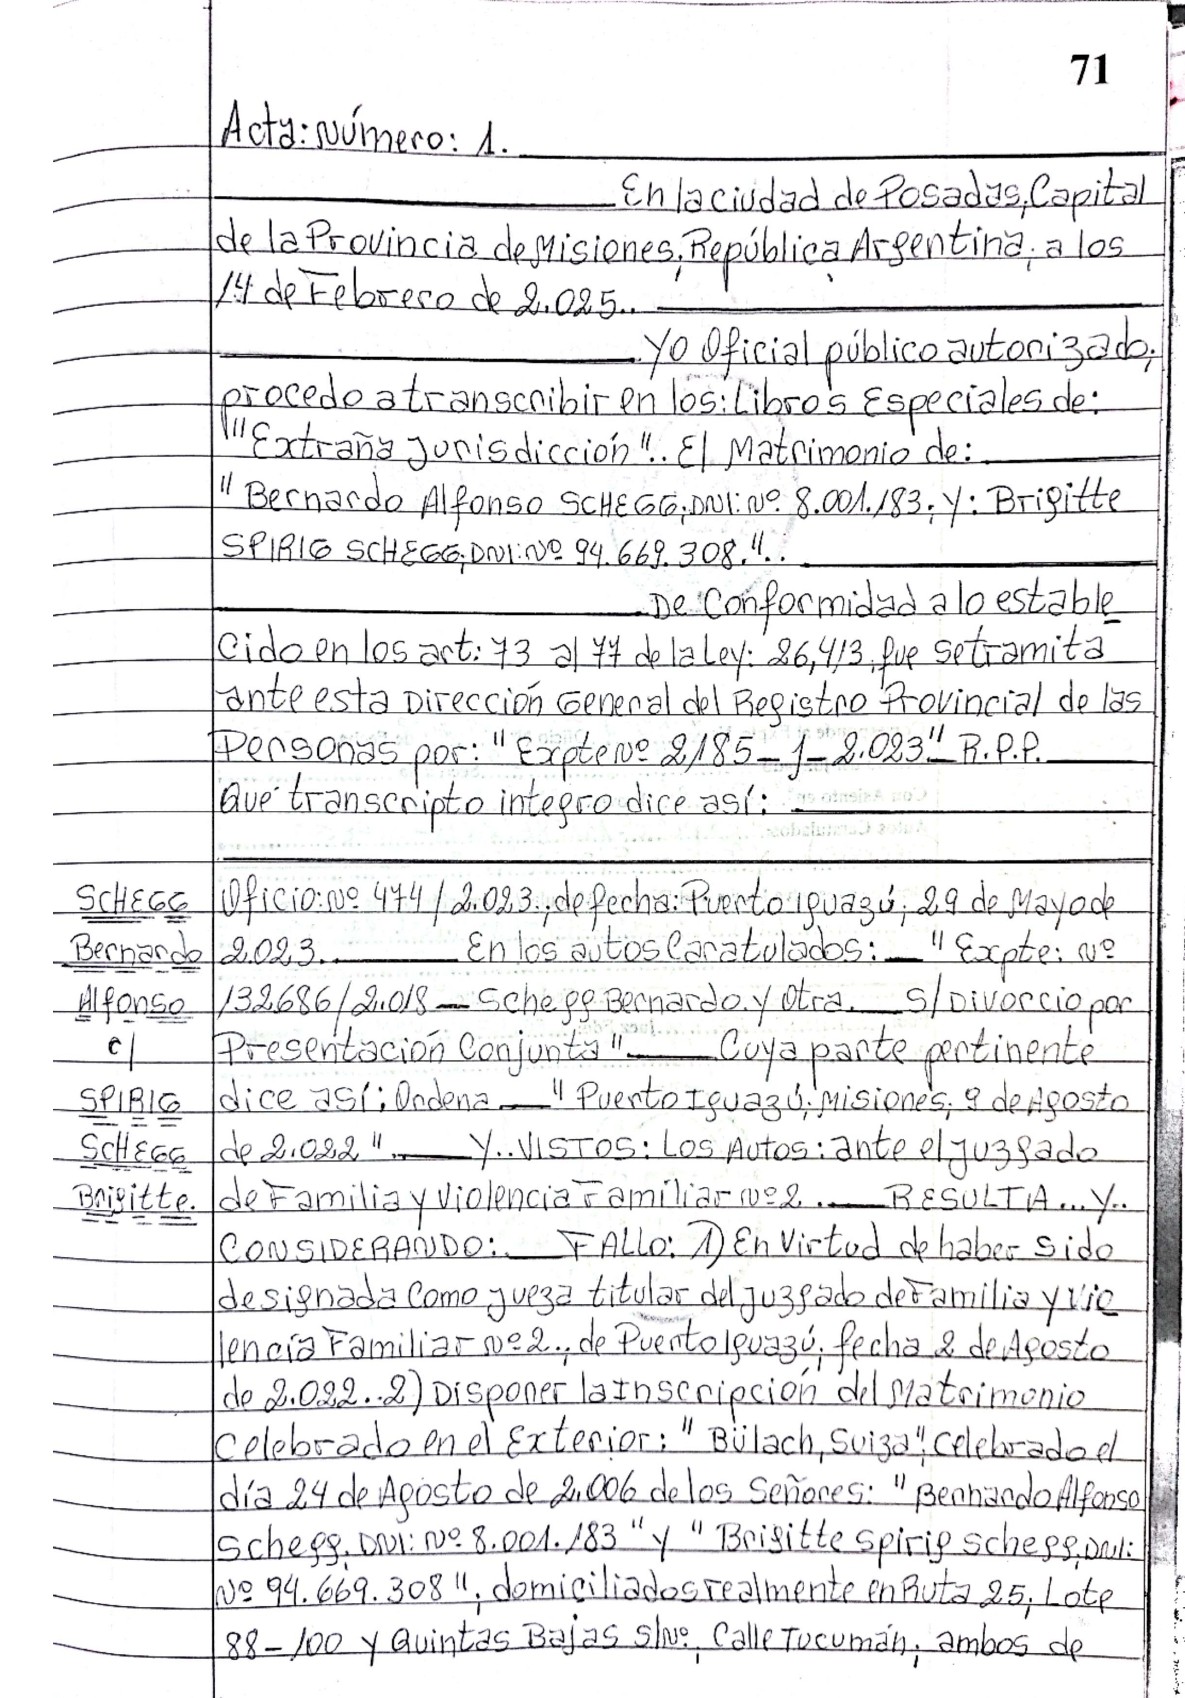 71
Acta: Número: 1.
En la ciudad de Posadas, Capital
de la Provincia de Misiones, República Argentina, a los
14 de Febrero de 2.025..
Yo Oficial público autorizado,
procedo a transcribir en los: Libros Especiales de:
"Extraña Jurisdicción".. El Matrimonio de:
"Bernardo Alfonso SCHEGG, DNI: Nº 8.001.183, y: Brigitte
SPIRIG SCHEGG, DNI: Nº 94.669.308."..
De Conformidad a lo estable
cido en los art: 73 al 77 de la Ley: 26,413, que se tramita
ante esta Dirección General del Registro Provincial de las
Personas por: "Expte Nº 2185-J-2.023" R.P.P.
Que transcripto integro dice así:
SCHEGG Oficio: Nº 474/2.023., de fecha: Puerto Iguazú, 29 de Mayo de
Bernardo 2.023. En los autos Caratulados: "Expte: Nº
Alfonso 132686/2.018 - Schegg Bernardo. y Otra. S/Divorcio por
c/ Presentación Conjunta" Cuya parte pertinente
SPIRIG dice así: Ordena "Puerto Iguazú, Misiones, 9 de Agosto
SCHEGG de 2.022". Y.. VISTOS: Los Autos: ante el Juzgado
Brigitte. de Familia y Violencia Familiar Nº 2. RESULTA... Y..
CONSIDERANDO: FALLO: 1) En Virtud de haber sido
designada Como Jueza titular del Juzgado de Familia y Vio
lencia Familiar Nº 2., de Puerto Iguazú, fecha 2 de Agosto
de 2.022..2) Disponer la Inscripción del Matrimonio
Celebrado en el Exterior: "Bülach, Suiza", Celebrado el
día 24 de Agosto de 2.006 de los Señores: "Bernardo Alfonso
Schegg, DNI: Nº 8.001.183" y "Brigitte Spirig Schegg, DNI:
Nº 94.669.308", domiciliados realmente en Ruta 25, Lote
88-100 y Quintas Bajas S/Nº, Calle Tucumán, ambos de